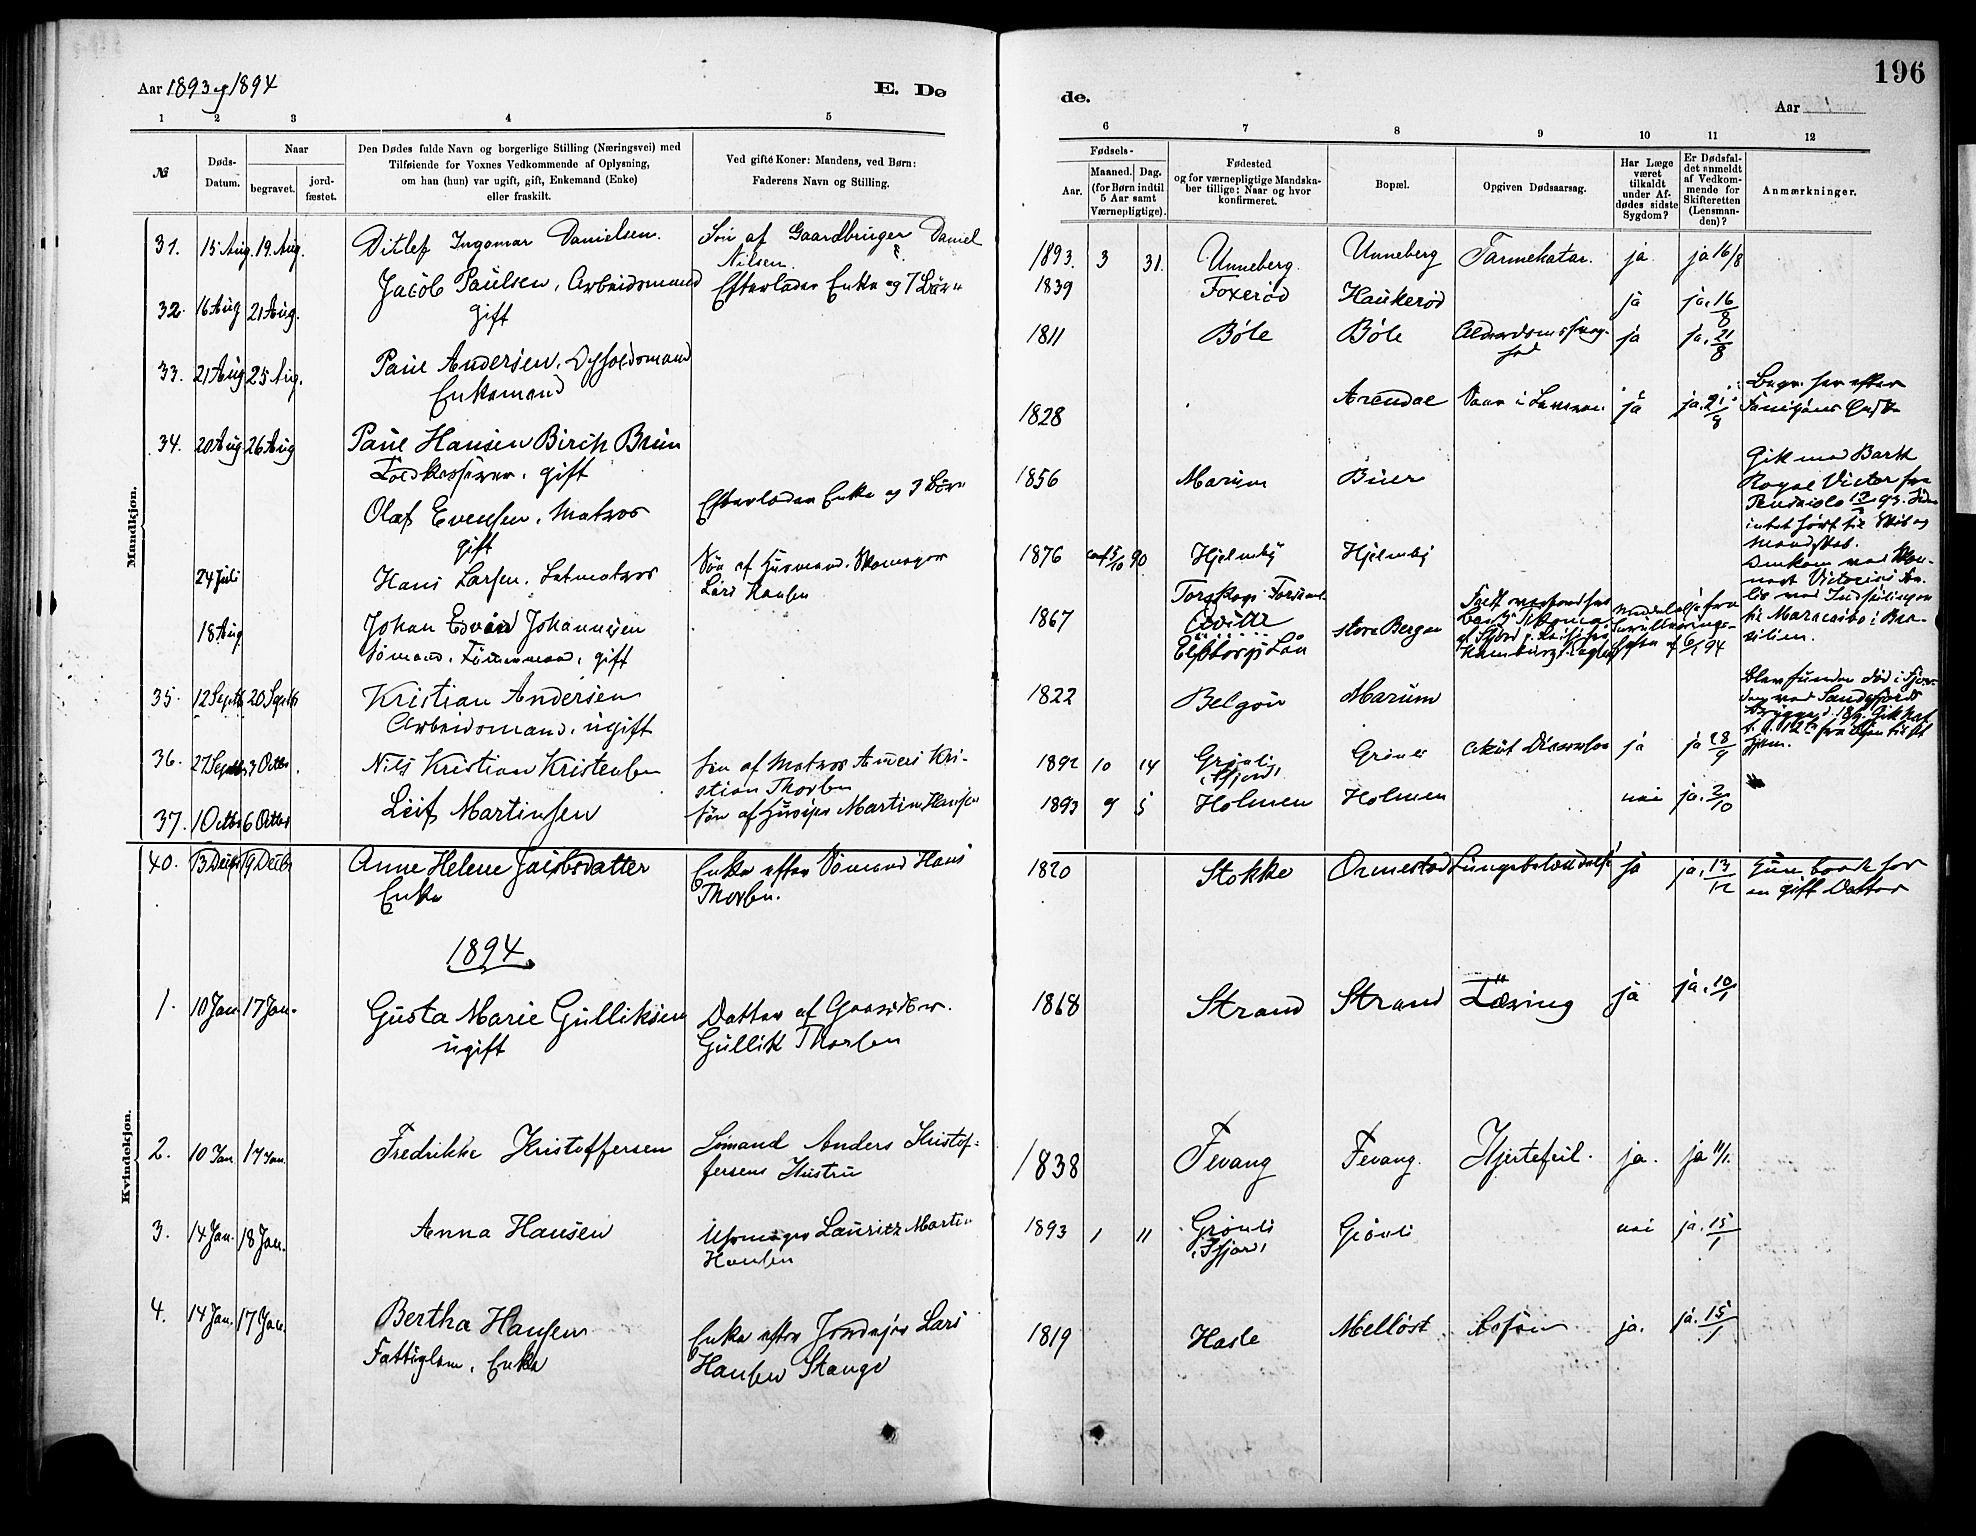 196
Aar 1893 og 1894
E. Dø
de.
Aar
1 2 3 4 5
6 7 8 9 10 11 12
№
Døds-
Datum.
Naar
begravet.
jord-
fæstet.
Den Dødes fulde Navn og borgerlige Stilling (Næringsvei) med
Tilføiende for Voxnes Vedkommende af Oplysning,
om han (hun) var ugift, gift, Enkemand (Enke)
eller fraskilt.
Ved gifte Koner: Mandens, ved Børn:
Faderens Navn og Stilling.
Fødsels-
Aar.
Maaned. Dag.
(for Børn indtil
5 Aar samt
Værnepligtige).
Fødested
og for værnepligtige Mandska-
ber tillige: Naar og hvor
konfirmeret.
Bopæl.
Opgiven Dødsaarsag.
Har Læge
været
tilkaldt
under Af-
dødes sidste
Sygdom?
Er Dødsfal-
det anmeldt
af Vedkom-
mende for
Skifteretten
(Lensman-
den)?
Anmærkninger.
Mandkjøn.
31. 15 Aug. 19 Aug. Ditlef Ingomar Danielsen. Søn af Gaardbruger Daniel
Nilsen.
1893. 3 31. Unneberg. Unneberg Tarmekatar. ja ja 16/8
32. 16 Aug 21 Aug. Jacob Paulsen, Arbeidsmand Efterlader Enke og 7 Børn
gift
1839 Foxerød Haukerød ja ja. 16/8
33. 21 Aug 25 Aug. Paul Andersen.
Enkemand
1811 Bøle Bøle ja ja. 21/8
34. 20 Aug 26 Aug Paul Hansen Birch Bruun
Toldkasserer. gift
1828 Arendal ja ja. 21/8 Begr. her efter
Olaf Evensen, Matros Efterlader Enke og 3 Børn
gift
1856 Marum Buer Gik med Bark
Royal Victor fra
intet hørt til Skib og
Mandskab.
24 Juli Hans Larsen. Letmatros Søn af Husmand. Skomager
Lars Hansen
1876 Hjelmby Hjelmby
til Maracaibo i Bra-
silien.
18 Aug. Johan Johannesen
Sømand, Tømmermand, gift
1867 Elfsborgs Län Store Bergan
35. 12 Septb 20 Septb Kristian Andersen
Arbeidsmand, ugift
1822 Belgön Marum Blev funden død i Fjor-
den ved Sandefjords
hjem.
36. 27 Septb 3 Octbr. Nils Kristian Kristensen Søn af Matros Anders Kri-
stian Thorsen
1892 10 14 Grønli Grønli akut ja ja 28/9
37. 1 Octbr 6 Octbr Leif Martinsen Søn af Martin Hansen
1893 9 5 Holmen Holmen nei ja. 2/10
Kvindekjøn.
40. 13 Decbr 19 Decbr Anne Helene Jacobsdatter Enke efter Sømand Hans
Enke Thorsen.
1820 Stokke Ormestad Lungebetændelse ja ja. 13/12 Hun boede hos
en gift Datter
1894.
1. 10 Jan 17 Jan. Gusta Marie Gulliksen Datter af Gaardbr.
ugift Gullik Thorsen
1868 Strand Strand Tæring ja ja. 10/1
2. 10 Jan 17 Jan. Fredrikke Kristoffersen Sømand Anders Kristof-
fersens Hustru
1838 Fevang Fevang. Hjertefeil. ja. ja 11/1.
3. 14 Jan. 18 Jan. Anna Hansen Lauritz Martin
Hansen
1893 1 11 Grønli Grønli nei ja. 15/1
4. 14 Jan. 17 Jan. Bertha Hansen Enke efter Jordejer Lars
Fattiglem. Enke Hansen Stange
1819 Hasle Melløst ja. ja. 15/1